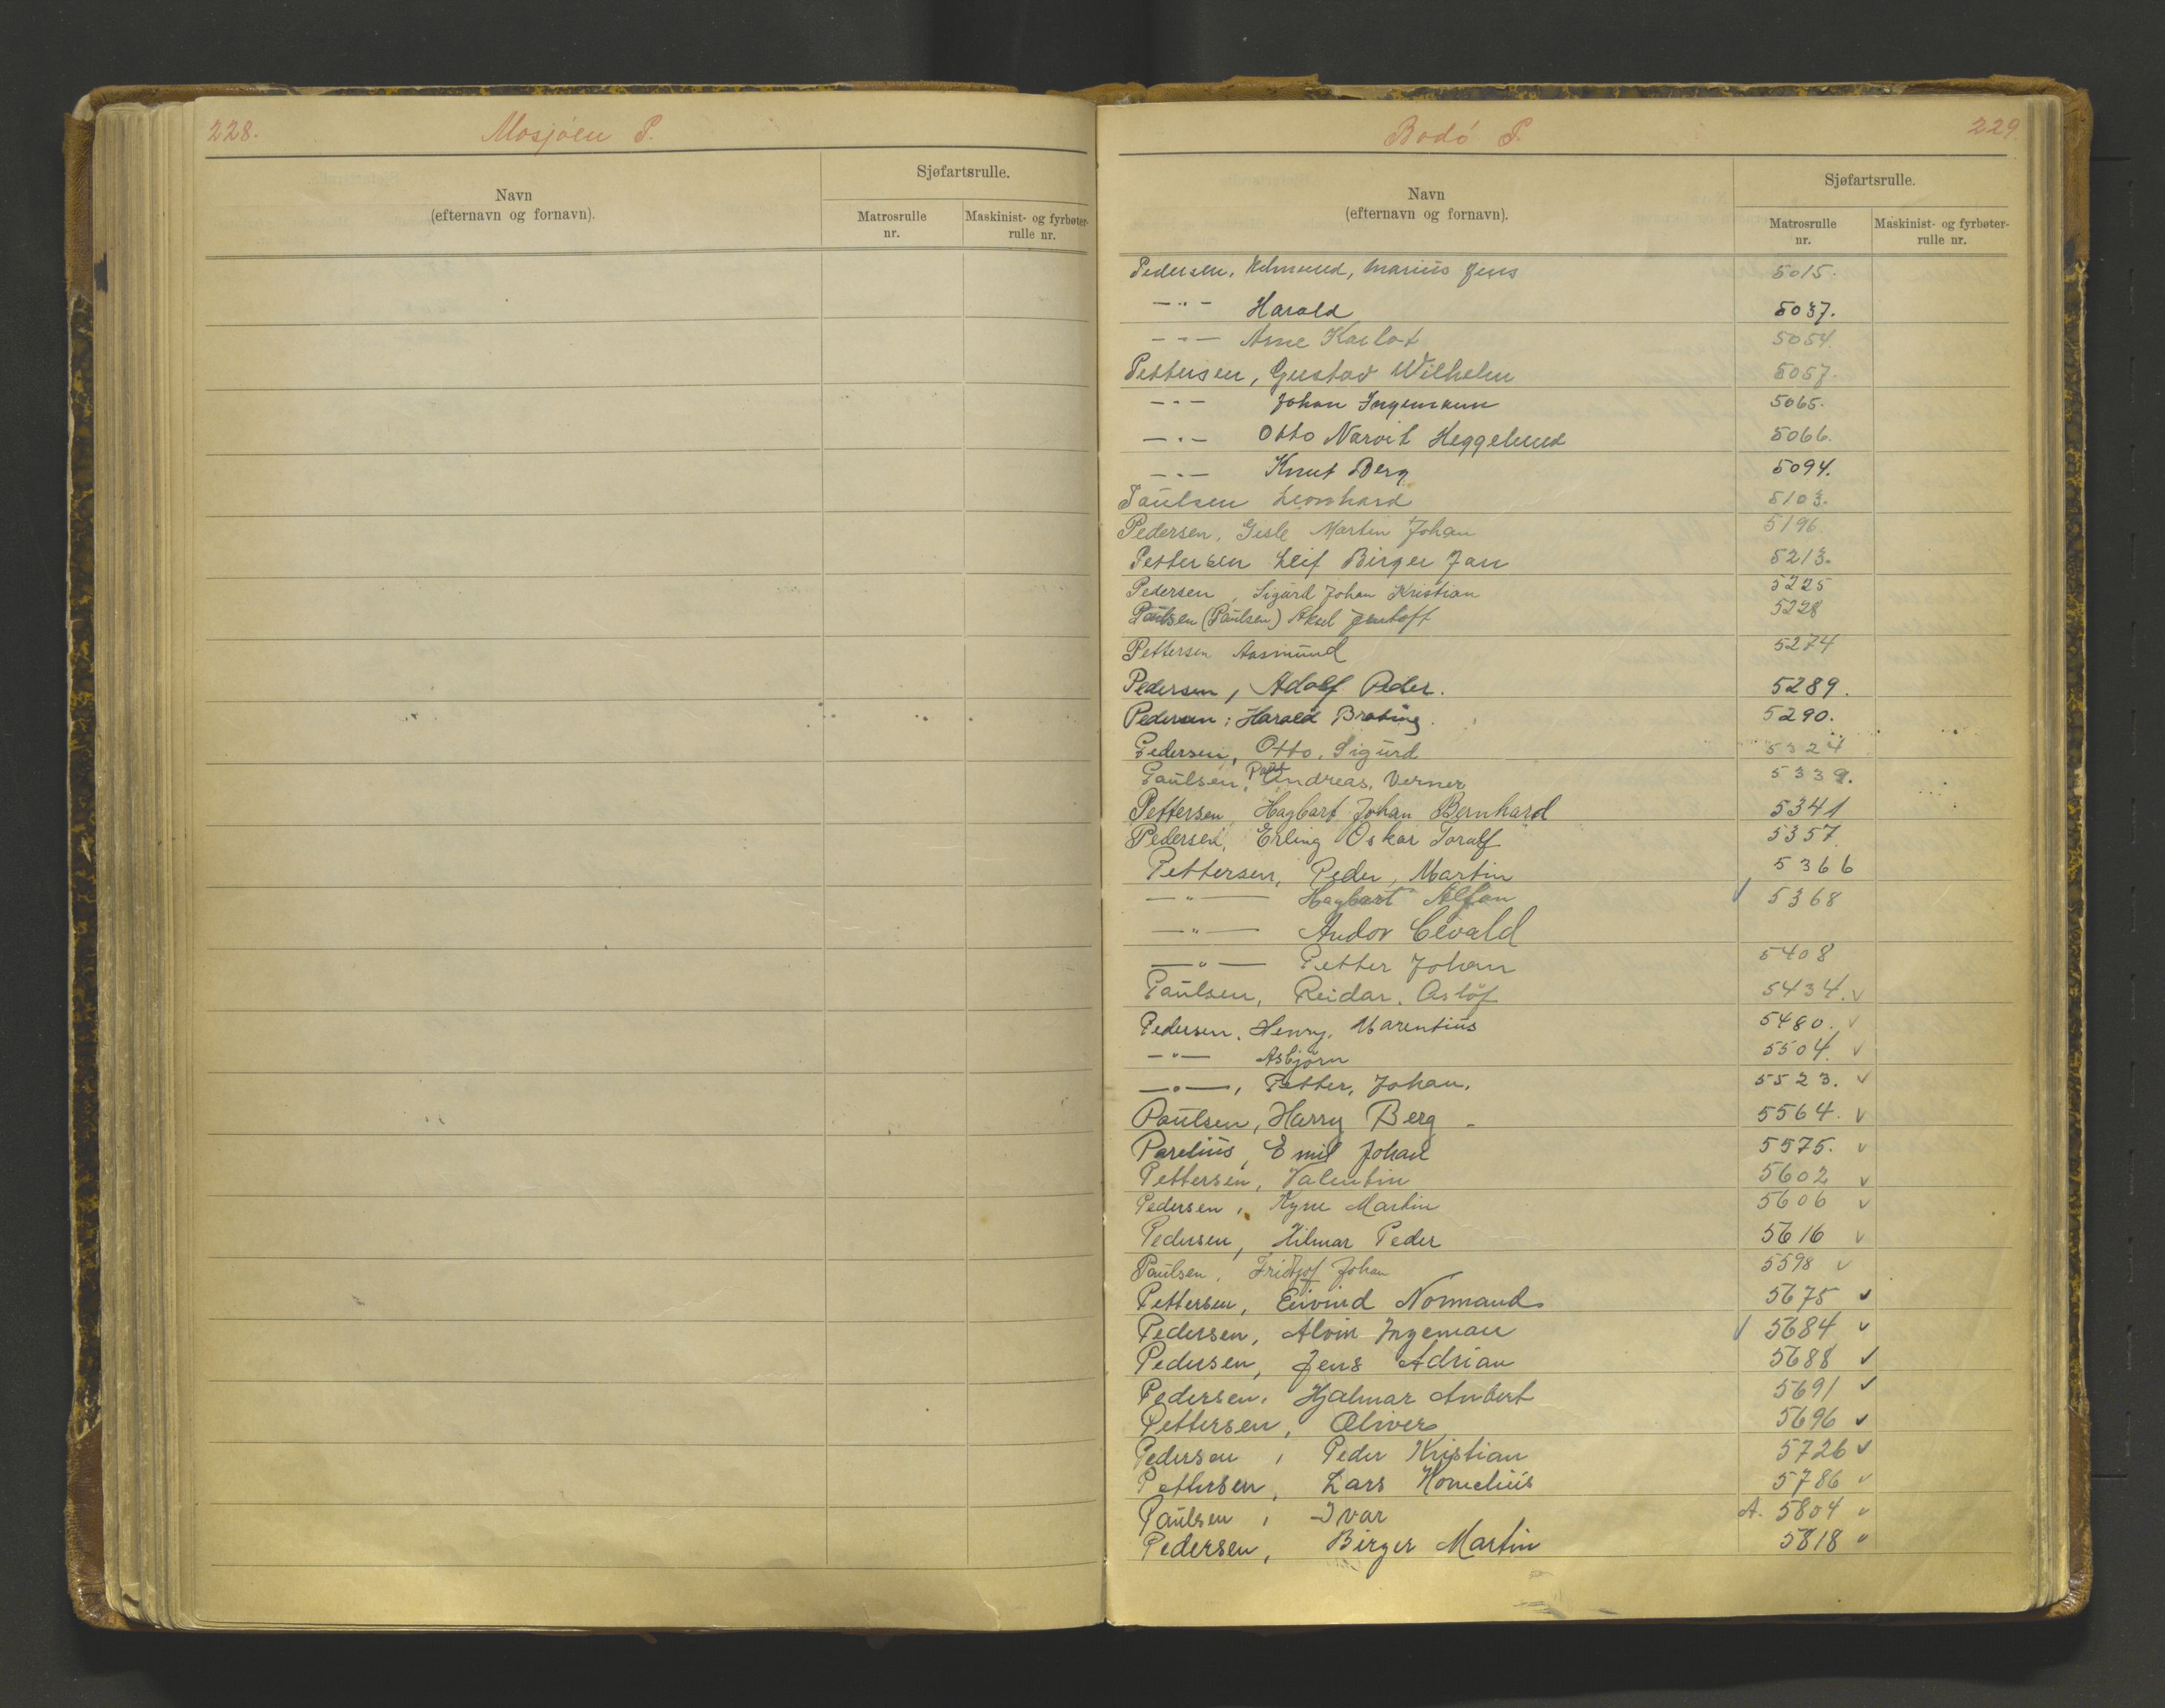 228.
Mosjöen P.
Navn
(efternavn og fornavn).
Sjøfartsrulle.
Matrosrulle
nr.
Maskinist- og fyrbøter-
rulle nr.
Bodö P.
229.
Navn
(efternavn og fornavn).
Sjøfartsrulle.
Matrosrulle
nr.
Maskinist- og fyrbøter-
rulle nr.
Pedersen, Marius Jens 5015.
— " — Harald 5037.
— " — Arne Karlot 5054.
Pettersen, Gustav Wilhelm 5057.
— " — Johan 5065.
— " — Otto Narvit Heggelund 5066.
— " — Knut Berg 5094.
Paulsen Leonhard 5103.
Pedersen, Gisle Martin Johan 5196
Pettersen Leif Birger Jan 5213.
Pedersen, Sigurd Johan Kristian 5225
Paulsen (Paulsen) Aksel Jentoft 5228
Pettersen Aasmund 5274
Pedersen, Adolf Peder. 5289.
Pedersen; Harald 5290.
Pedersen, Otto, Sigurd 5324
Paulsen, Paul Andreas, Verner 5339.
Pettersen, Hagbart Johan Bernhard 5341
Pedersen, Erling Oskar Toralf 5357.
Pettersen, Peder, Martin 5366
— " — Hagbart √ 5368
— " — Andor Edvald
— " — Petter Johan 5408
Paulsen, Reidar. 5434. v
Pedersen, Henry, Marentius 5480. v
— " — Asbjörn 5504. v
— " —, Petter, Johan. 5523. v
Paulsen, Harry Berg - 5564. v
Parelius, Emil Johan 5575. v
Pettersen, Valentin 5602 v
Pedersen, Martin 5606 v
Pedersen, Hilmar Peder 5616 v
Paulsen, Fridtjof Johan 5598 v
Pettersen, Eivind Normand 5675 v
Pedersen, Alvin Ingeman √ 5684 v
Pedersen, Jens Adrian 5688 v
Pedersen, Hjalmar Anbert 5691 v
Pettersen, Oliver 5696 v
Pedersen, Peder Kristian 5726 v
Pettersen, Lars Kornelius 5786 v
Paulsen, Ivar A. 5804 v
Pedersen, Birger Martin 5818 v